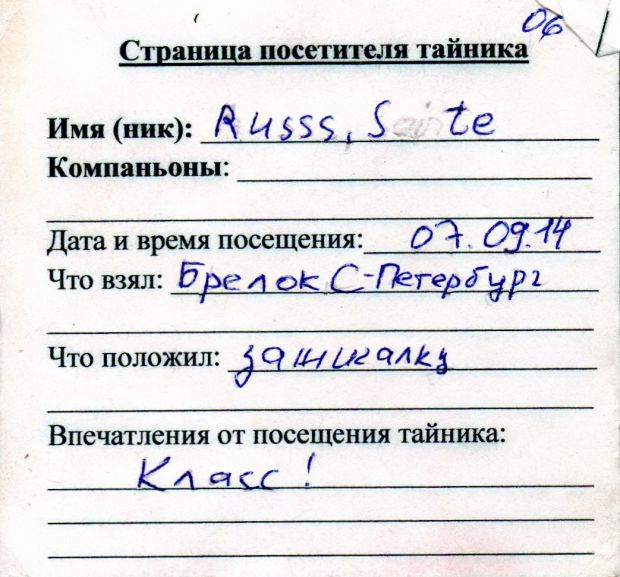 06
Страница посетителя тайника
Имя (ник): Russs,
Компаньоны:
Дата и время посещения: 07.09.14
Что взял: Брелок С-Петербург
Что положил: зажигалку
Впечатления от посещения тайника:
Класс!